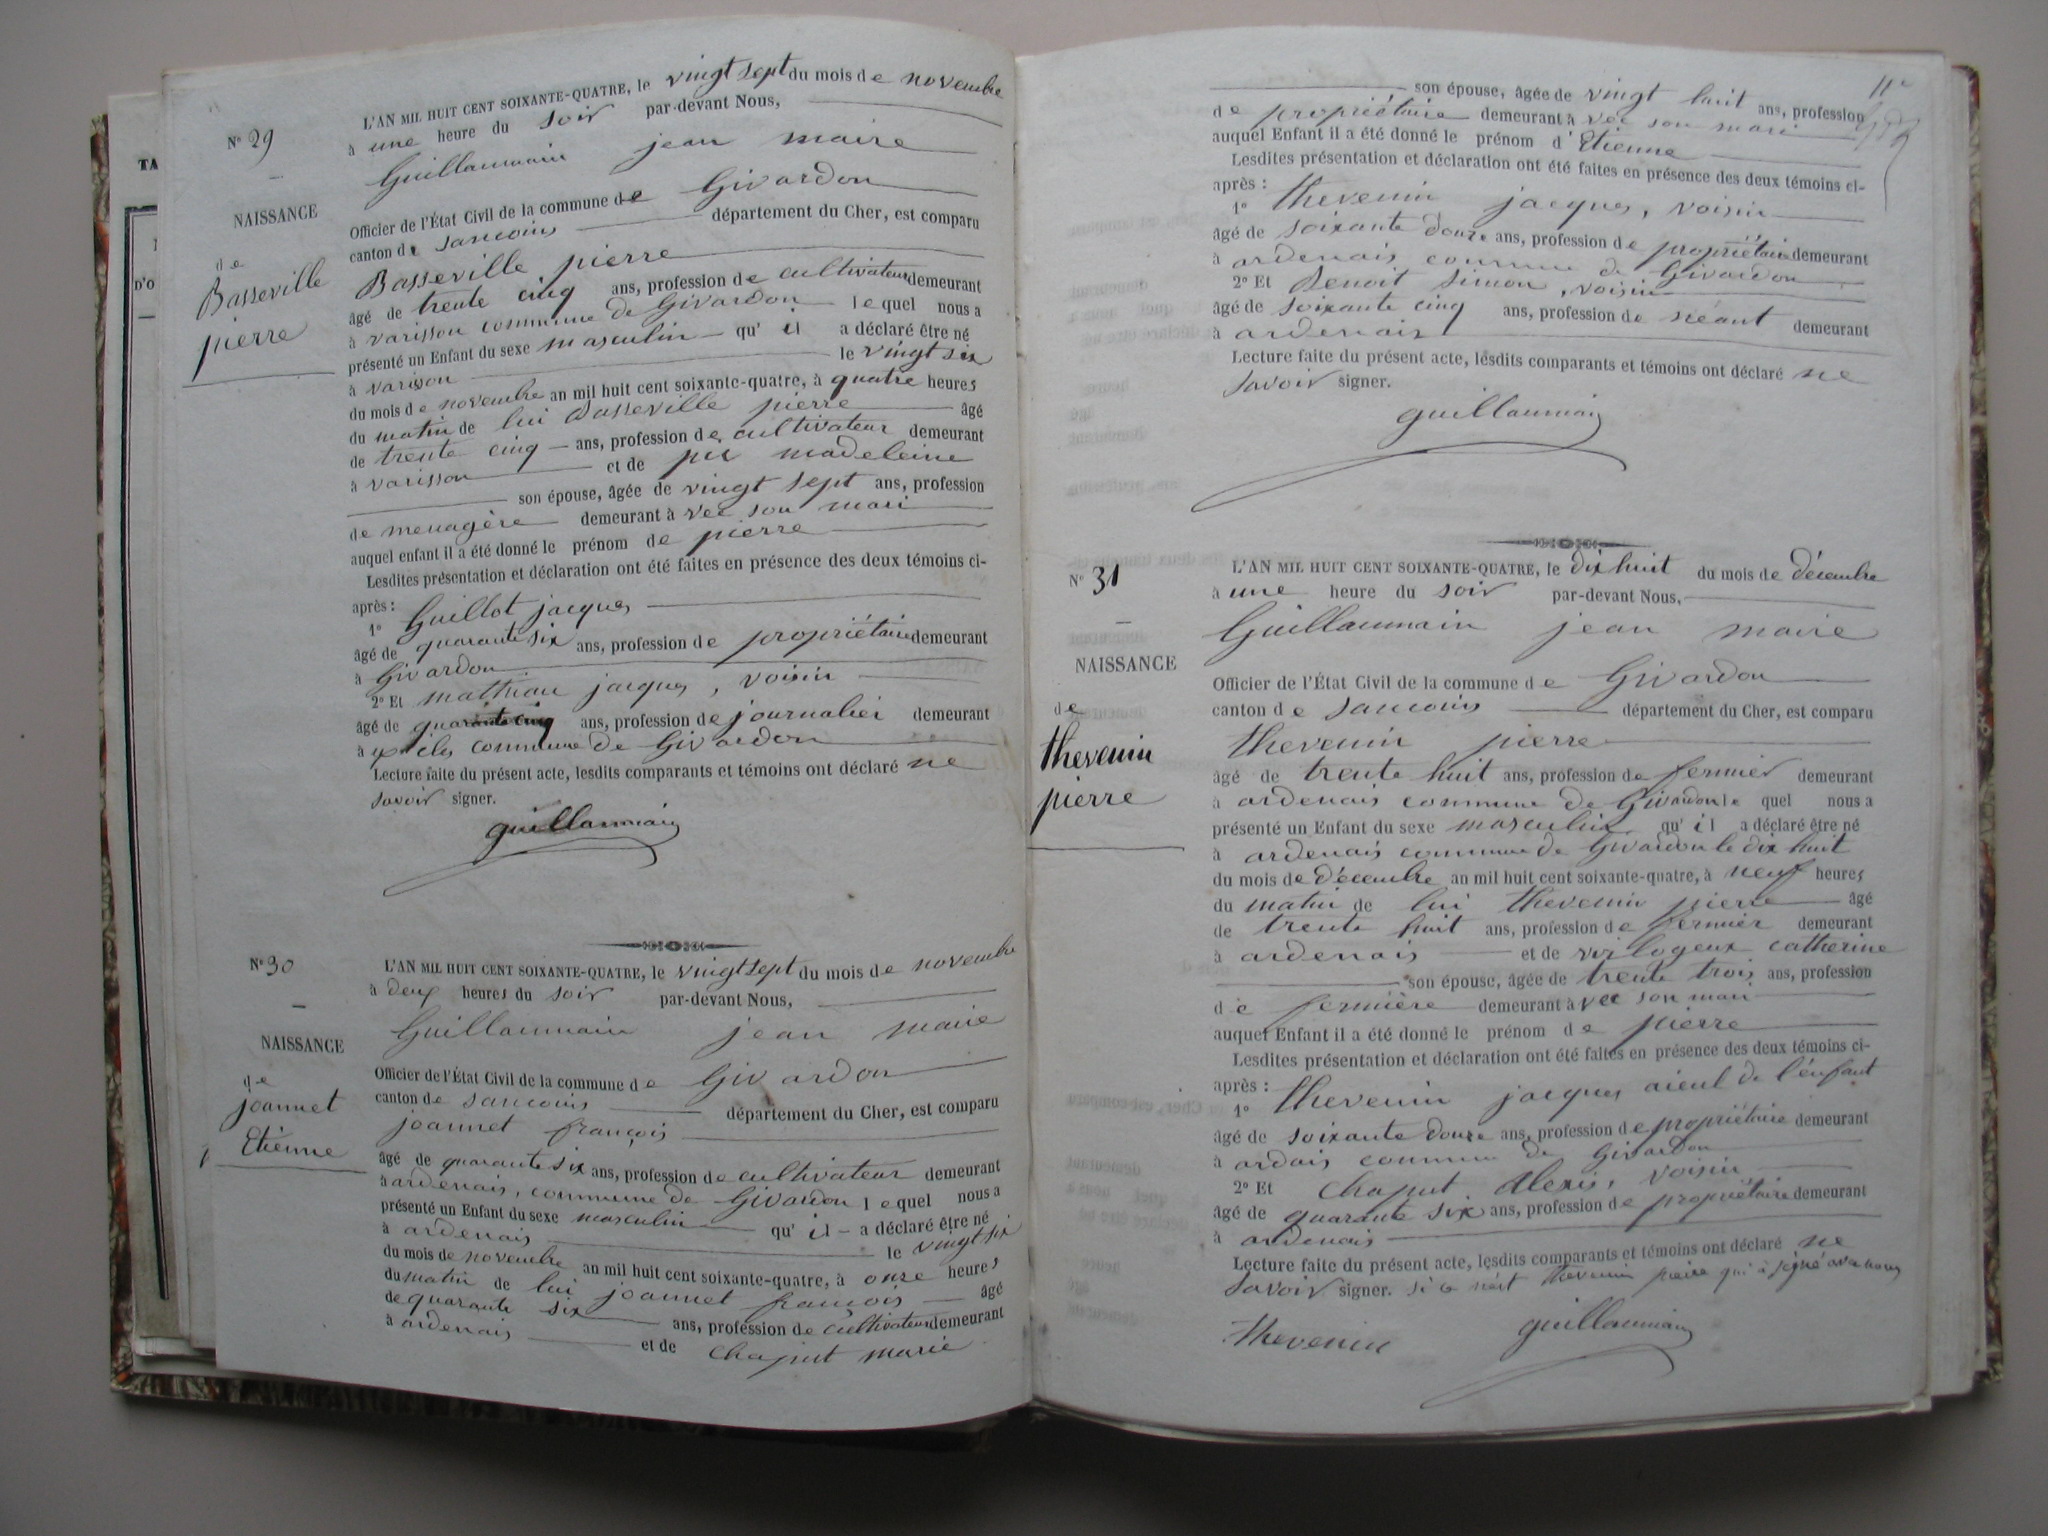 N° 29
NAISSANCE
de
Basseville
pierre
L'AN MIL HUIT CENT SOIXANTE-QUATRE, le vingt sept du mois de novembre
à une heure du soir par-devant Nous,
Guillaumain jean maire
Officier de l'État Civil de la commune de Givardon
canton de sancoins département du Cher, est comparu
Basseville pierre
âgé de trente cinq ans, profession de cultivateur demeurant
à varisson commune de Givardon lequel nous a
présenté un Enfant du sexe masculin qu'il a déclaré être né
à varisson le vingt six
du mois de novembre an mil huit cent soixante-quatre, à quatre heures
du matin de lui Basseville pierre âgé
de trente cinq ans, profession de cultivateur demeurant
à varisson et de madeleine
son épouse, âgée de vingt sept ans, profession
de menagère demeurant à vec son mari
auquel enfant il a été donné le prénom de pierre
Lesdites présentation et déclaration ont été faites en présence des deux témoins ci-
après :
1° Guillot jacques
âgé de quarante six ans, profession de propriétaire demeurant
à Givardon
2° Et mathiau jacques, voisin
âgé de quarante cinq ans, profession de journalier demeurant
à commune de Givardon
Lecture faite du présent acte, lesdits comparants et témoins ont déclaré ne
savoir signer.
guillaumain
N° 30
NAISSANCE
de
joannet
Etienne
L'AN MIL HUIT CENT SOIXANTE-QUATRE, le vingt sept du mois de novembre
à deux heures du soir par-devant Nous,
Guillaumain jean maire
Officier de l'État Civil de la commune de Givardon
canton de sancoins département du Cher, est comparu
joannet françois
âgé de quarante six ans, profession de cultivateur demeurant
à ardenais, commune de Givardon lequel nous a
présenté un Enfant du sexe masculin qu'il a déclaré être né
à ardenais le vingt six
du mois de novembre an mil huit cent soixante-quatre, à onze heures
du matin de lui joannet françois âgé
de quarante six ans, profession de cultivateur demeurant
à ardenais et de chaput marie
11e
son épouse, âgée de vingt huit ans, profession
de propriétaire demeurant à vec son mari
auquel Enfant il a été donné le prénom d'Etienne
Lesdites présentation et déclaration ont été faites en présence des deux témoins ci-
après :
1° thevenin jacques, voisin
âgé de soixante douze ans, profession de propriétaire demeurant
à ardenais commune de Givardon
2° Et Benoit simon, voisin
âgé de soixante cinq ans, profession de néant demeurant
à ardenais
Lecture faite du présent acte, lesdits comparants et témoins ont déclaré ne
savoir signer.
guillaumain
N° 31
NAISSANCE
de
thevenin
pierre
L'AN MIL HUIT CENT SOIXANTE-QUATRE, le dix huit du mois de décembre
à une heure du soir par-devant Nous,
Guillaumain jean maire
Officier de l'État Civil de la commune de Givardon
canton de sancoins département du Cher, est comparu
thevenin pierre
âgé de trente huit ans, profession de fermier demeurant
à ardenais commune de Givardon lequel nous a
présenté un Enfant du sexe masculin qu'il a déclaré être né
à ardenais commune de Givardon le dix huit
du mois de décembre an mil huit cent soixante-quatre, à neuf heures
du matin de lui thevenin pierre âgé
de trente huit ans, profession de fermier demeurant
à ardenais et de virlogeux catherine
son épouse, âgée de trente trois ans, profession
de fermière demeurant à vec son mari
auquel Enfant il a été donné le prénom de pierre
Lesdites présentation et déclaration ont été faites en présence des deux témoins ci-
après :
1° thevenin jacques aieul de l'enfant
âgé de soixante douze ans, profession de propriétaire demeurant
à ardais commune de Givardon
2° Et chaput Alexis, voisin
âgé de quarante six ans, profession de propriétaire demeurant
à ardenais
Lecture faite du présent acte, lesdits comparants et témoins ont déclaré ne
savoir signer. si ce n'est thevenin pierre qui a signé avec nous
thevenin guillaumain